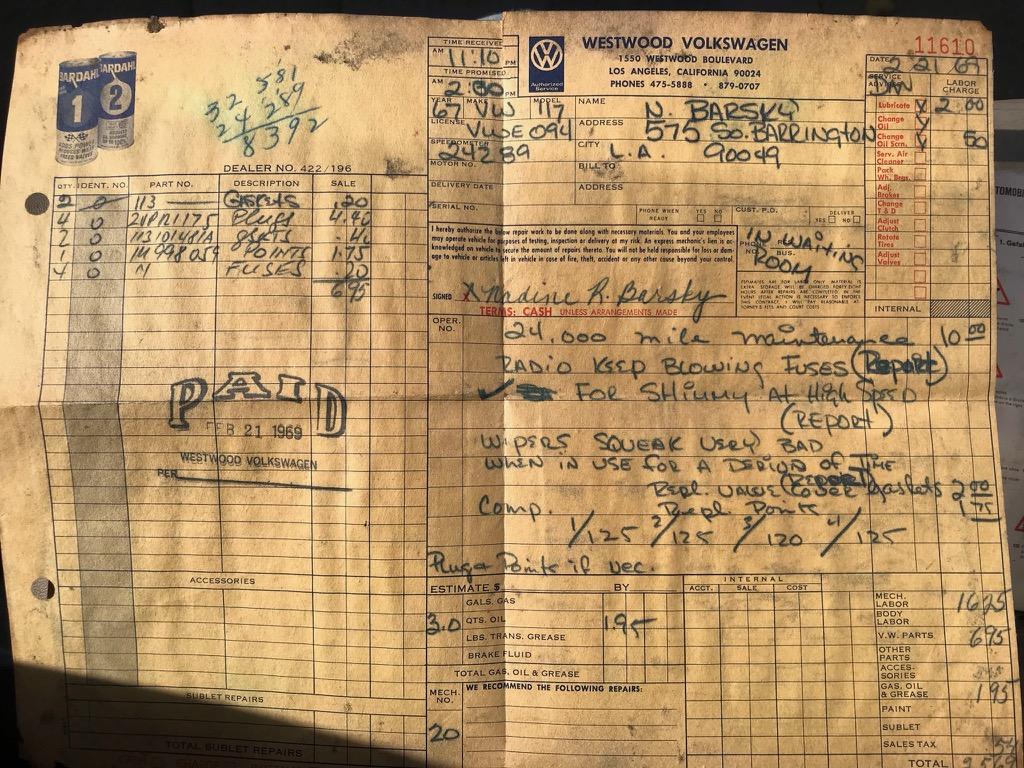 BARDAHL 1
BARDAHL 2
32,581
24289
8392
DEALER NO. 422/196
TIME RECEIVED
AM 11:10 PM
TIME PROMISED
AM 2:00 PM
WESTWOOD VOLKSWAGEN
1550 WESTWOOD BOULEVARD
LOS ANGELES, CALIFORNIA 90024
PHONES 475-5888 • 879-0707
Authorized Service
11610
DATE 2 21 69
SERVICE ADVISOR JW
LABOR CHARGE
YEAR 67 MAKE VW MODEL 117
LICENSE VWE 094
SPEEDOMETER 24289
MOTOR NO.
DELIVERY DATE
SERIAL NO.
NAME N. BARSKY
ADDRESS 575 So. BARRINGTON
CITY L.A. 90049
BILL TO
ADDRESS
PHONE WHEN READY YES NO
CUST. P.O.
DELIVER YES NO
IN WAITING ROOM
PHONE RES. BUS.
Lubricate X 2.00
Change Oil X
Change Oil Scrn. X 50
Serv. Air Cleaner
Pack Wh. Brgs.
Adj. Brakes
Change T & D
Adjust Clutch
Rotate Tires
Adjust Valves
INTERNAL
I hereby authorize the below repair work to be done along with necessary materials. You and your employees
may operate vehicle for purposes of testing, inspection or delivery at my risk. An express mechanic's lien is ac-
knowledged on vehicle to secure the amount of repairs thereto. You will not be held responsible for loss or dam-
age to vehicle or articles left in vehicle in case of fire, theft, accident or any other cause beyond your control.
SIGNED X Nadine R. Barsky
TERMS: CASH UNLESS ARRANGEMENTS MADE
QTY. IDENT. NO. PART NO. DESCRIPTION SALE
2 0 113 — GASKETS .20
4 0 Plugs 4.40
2 0 113101481A gskts .40
1 0 1M998059 POINTS 1.75
4 0 N FUSES .20
6.95
PAID
FEB 21 1969
WESTWOOD VOLKSWAGEN
PER
ACCESSORIES
SUBLET REPAIRS
TOTAL SUBLET REPAIRS
OPER. NO.
24,000 mile maintenance 10 00
RADIO KEEP BLOWING FUSES (Report)
✓ FOR SHIMMY AT High SPEED
(REPORT)
WIPERS SQUEAK VERY BAD
WHEN IN USE FOR A PERIOD OF TIME
(REPORT)
Repl. VALVE COVER gaskets 2 00
Comp. Repl. Points 1 75
1/125 2/125 3/120 4/125
Plug & Points if nec.
ESTIMATE $ BY
GALS. GAS
3.0 QTS. OIL 1.95
LBS. TRANS. GREASE
BRAKE FLUID
TOTAL GAS, OIL & GREASE
MECH. NO. WE RECOMMEND THE FOLLOWING REPAIRS:
20
INTERNAL
ACCT. SALE COST
MECH. LABOR 1625
BODY LABOR
V.W. PARTS 695
OTHER PARTS
ACCESSORIES
GAS, OIL & GREASE 195
PAINT
SUBLET
SALES TAX .54
TOTAL 2569